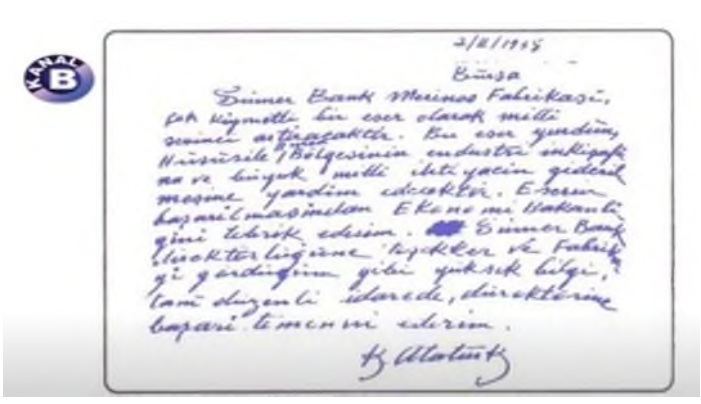 KANAL B
2/II/1938
Bursa
Sümer Bank Merinos Fabrikası,
çok kıymetli bir eser olarak milli
sevinci artıracaktır. Bu eser yurdun,
Hususile Bursa Bölgesinin endüstri inkişafı
na ve büyük milli ihtiyacın gideril
mesine yardım edecektir. Eserin
başarılmasından Ekonomi Bakanlı
ğını tebrik ederim. Sümer Bank
direktörlüğüne teşekkür ve Fabrika
yı gördüğüm gibi yüksek bilgi,
tam düzenli idarede, direktörüne
başarı temenni ederim.
K. Atatürk